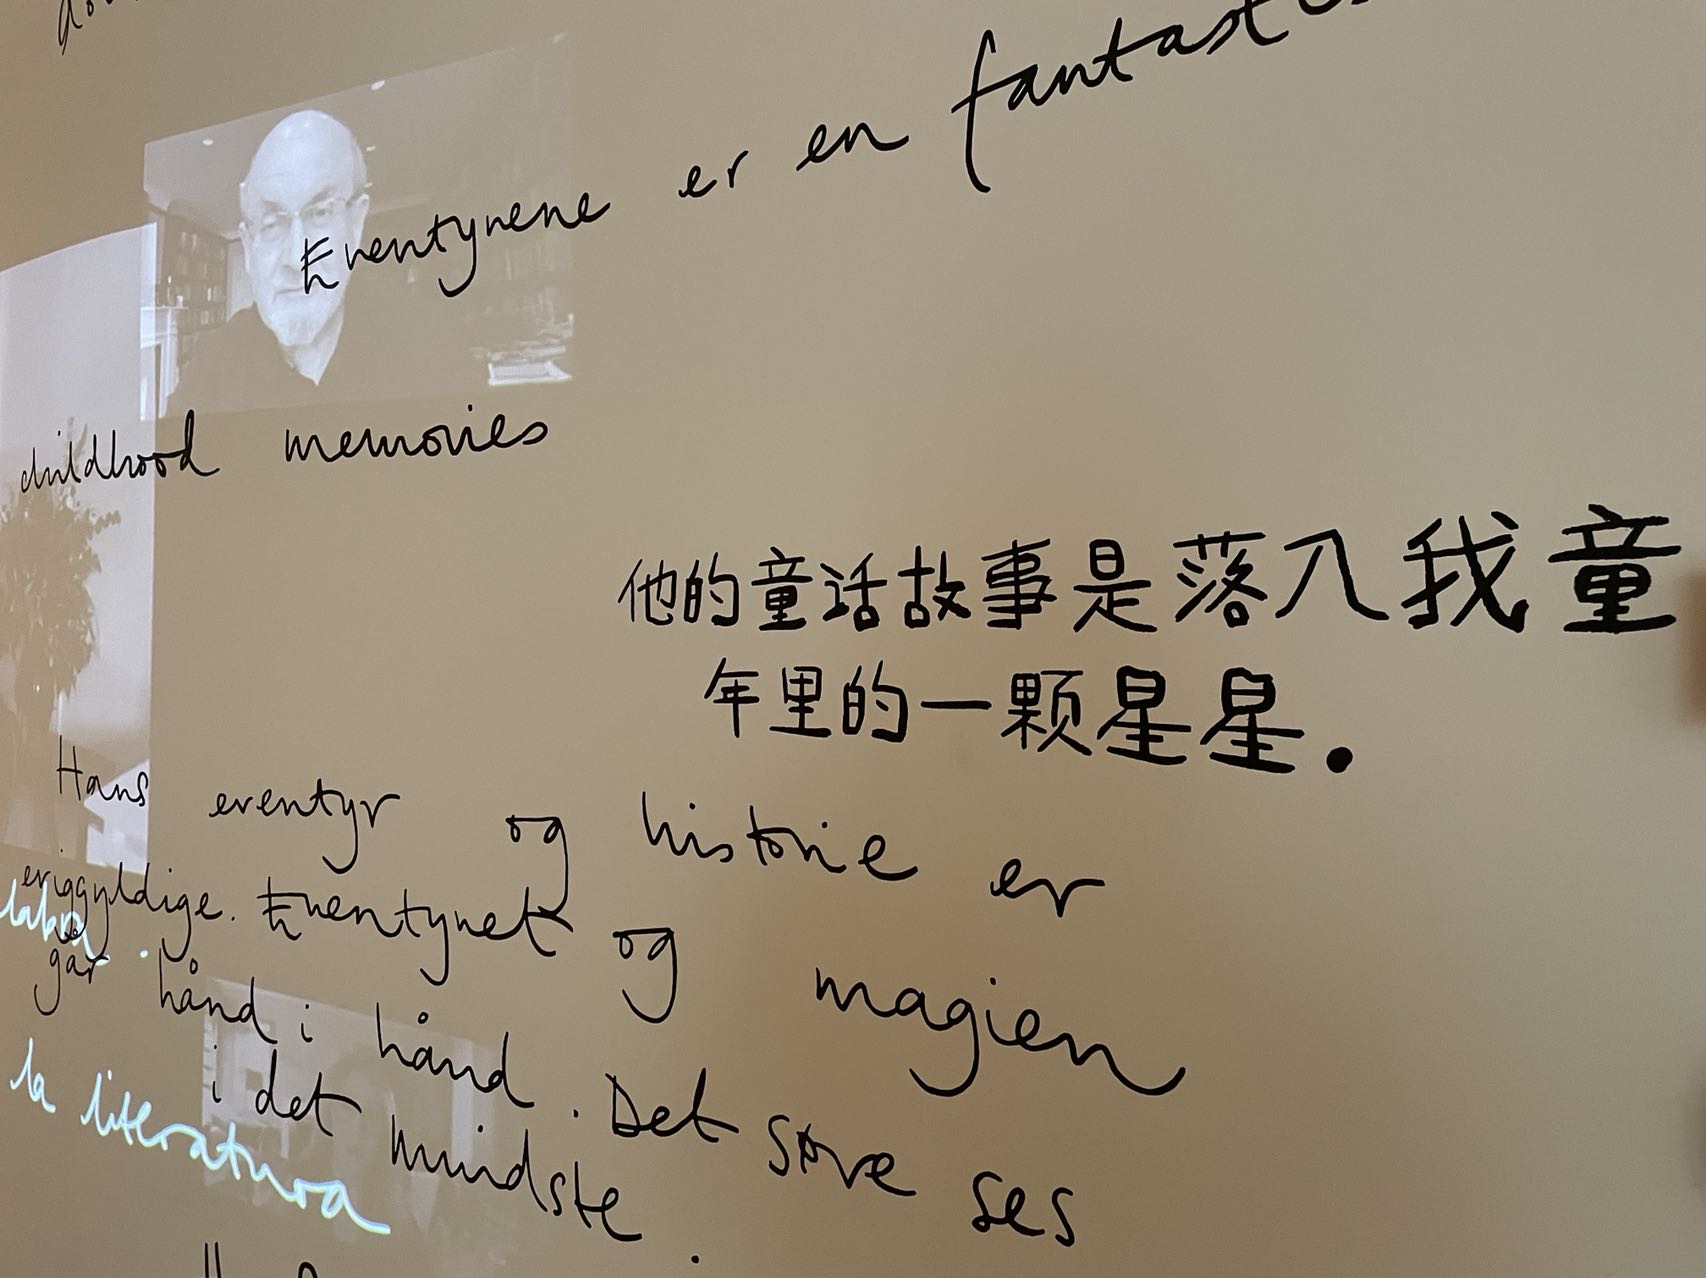 Eventyrene er en
childhood memories
他的童话故事是落入我童
年里的一颗星星.
Hans eventyr og historie er
eviggyldige. Eventyret og magien
går hånd i hånd. Det store ses
i det mindste.
la literatura